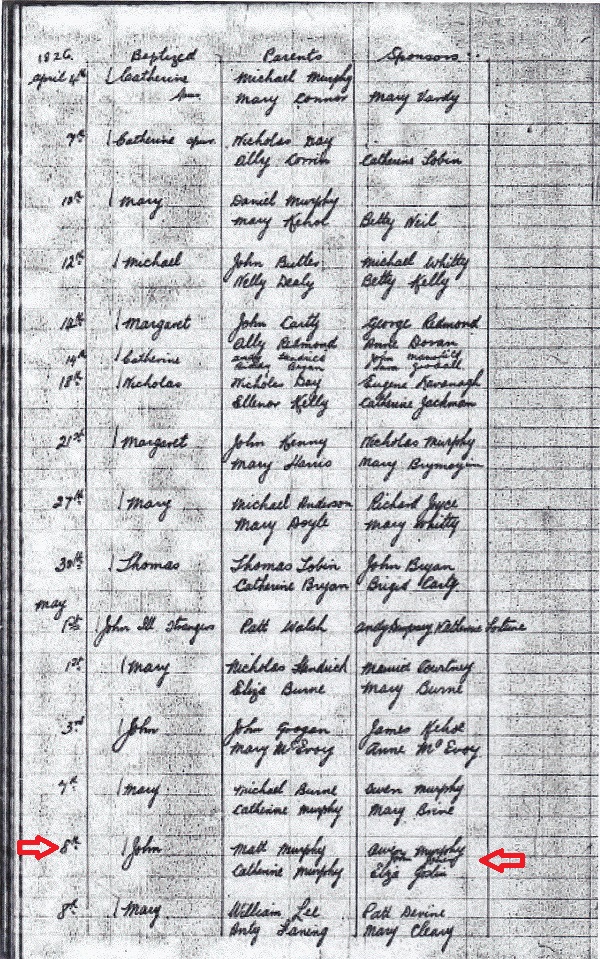 1826. Baptized Parents Sponsors
April 4th Catherine Michael Murphy
Mary Connor Mary Vardy
7th Catherine spur. Nicholas Day
Ally Corrin Catherine Tobin
10th Mary Daniel Murphy
Mary Kehoe Betty Neil
12th Michael John Butler Michael Whitty
Nelly Dealy Betty Kelly
14th Margaret John Carty George Redmond
Ally Redmond Anne Doran
14th Catherine Andy John Mansfield
Bryan Goodall
18th Nicholas Nicholas Day Eugene Kavanagh
Ellenor Kelly Catherine Jackman
21st Margaret John Kenny Nicholas Murphy
Mary Harris Mary
27th Mary Michael Anderson Richard Joyce
Mary Doyle Mary Whitty
30th Thomas Thomas Tobin John Bryan
Catherine Bryan Brigid Carty
May
1st John Ill Strangers Patt Walsh Andy Dempsey Katherine Fortune
1st Mary Nicholas Sandrich Maurice Courtney
Eliza Burne Mary Burne
3rd John John Grogan James Kehoe
Mary McEvoy Anne McEvoy
7th Mary Michael Burne Owen Murphy
Catherine Murphy Mary Brine
8th John Matt Murphy Owen Murphy
John
Catherine Murphy Eliza
8th Mary William Lee Patt Devine
Anty Laneng Mary Cleary